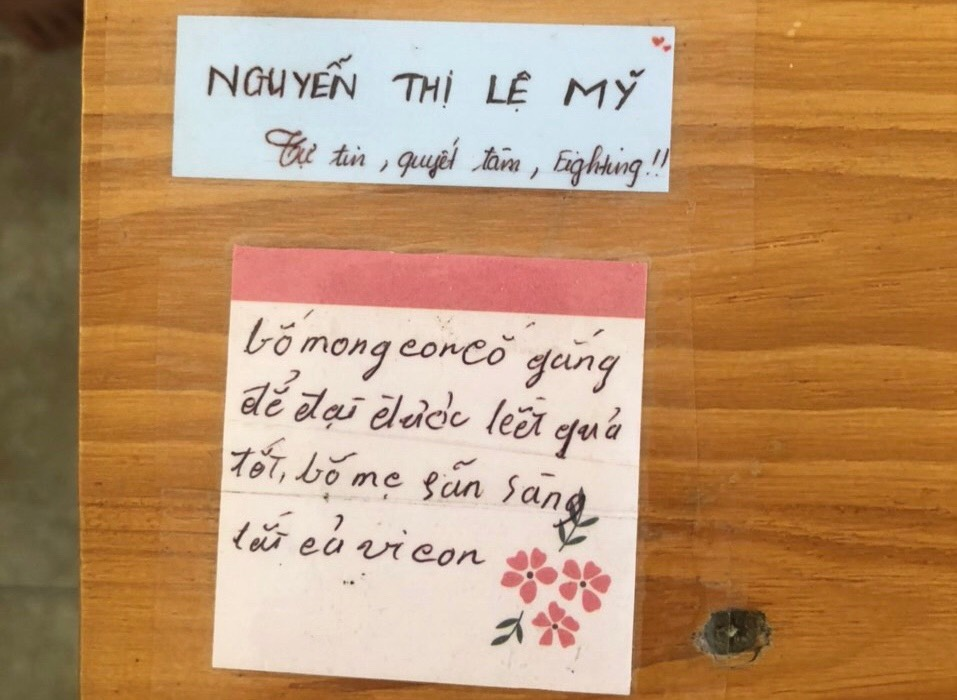 NGUYỄN THỊ LỆ MỸ
Tự tin, quyết tâm, Fighting!!
bố mong con cố gắng
để đạt được kết quả
tốt, bố mẹ sẵn sàng
tất cả vì con